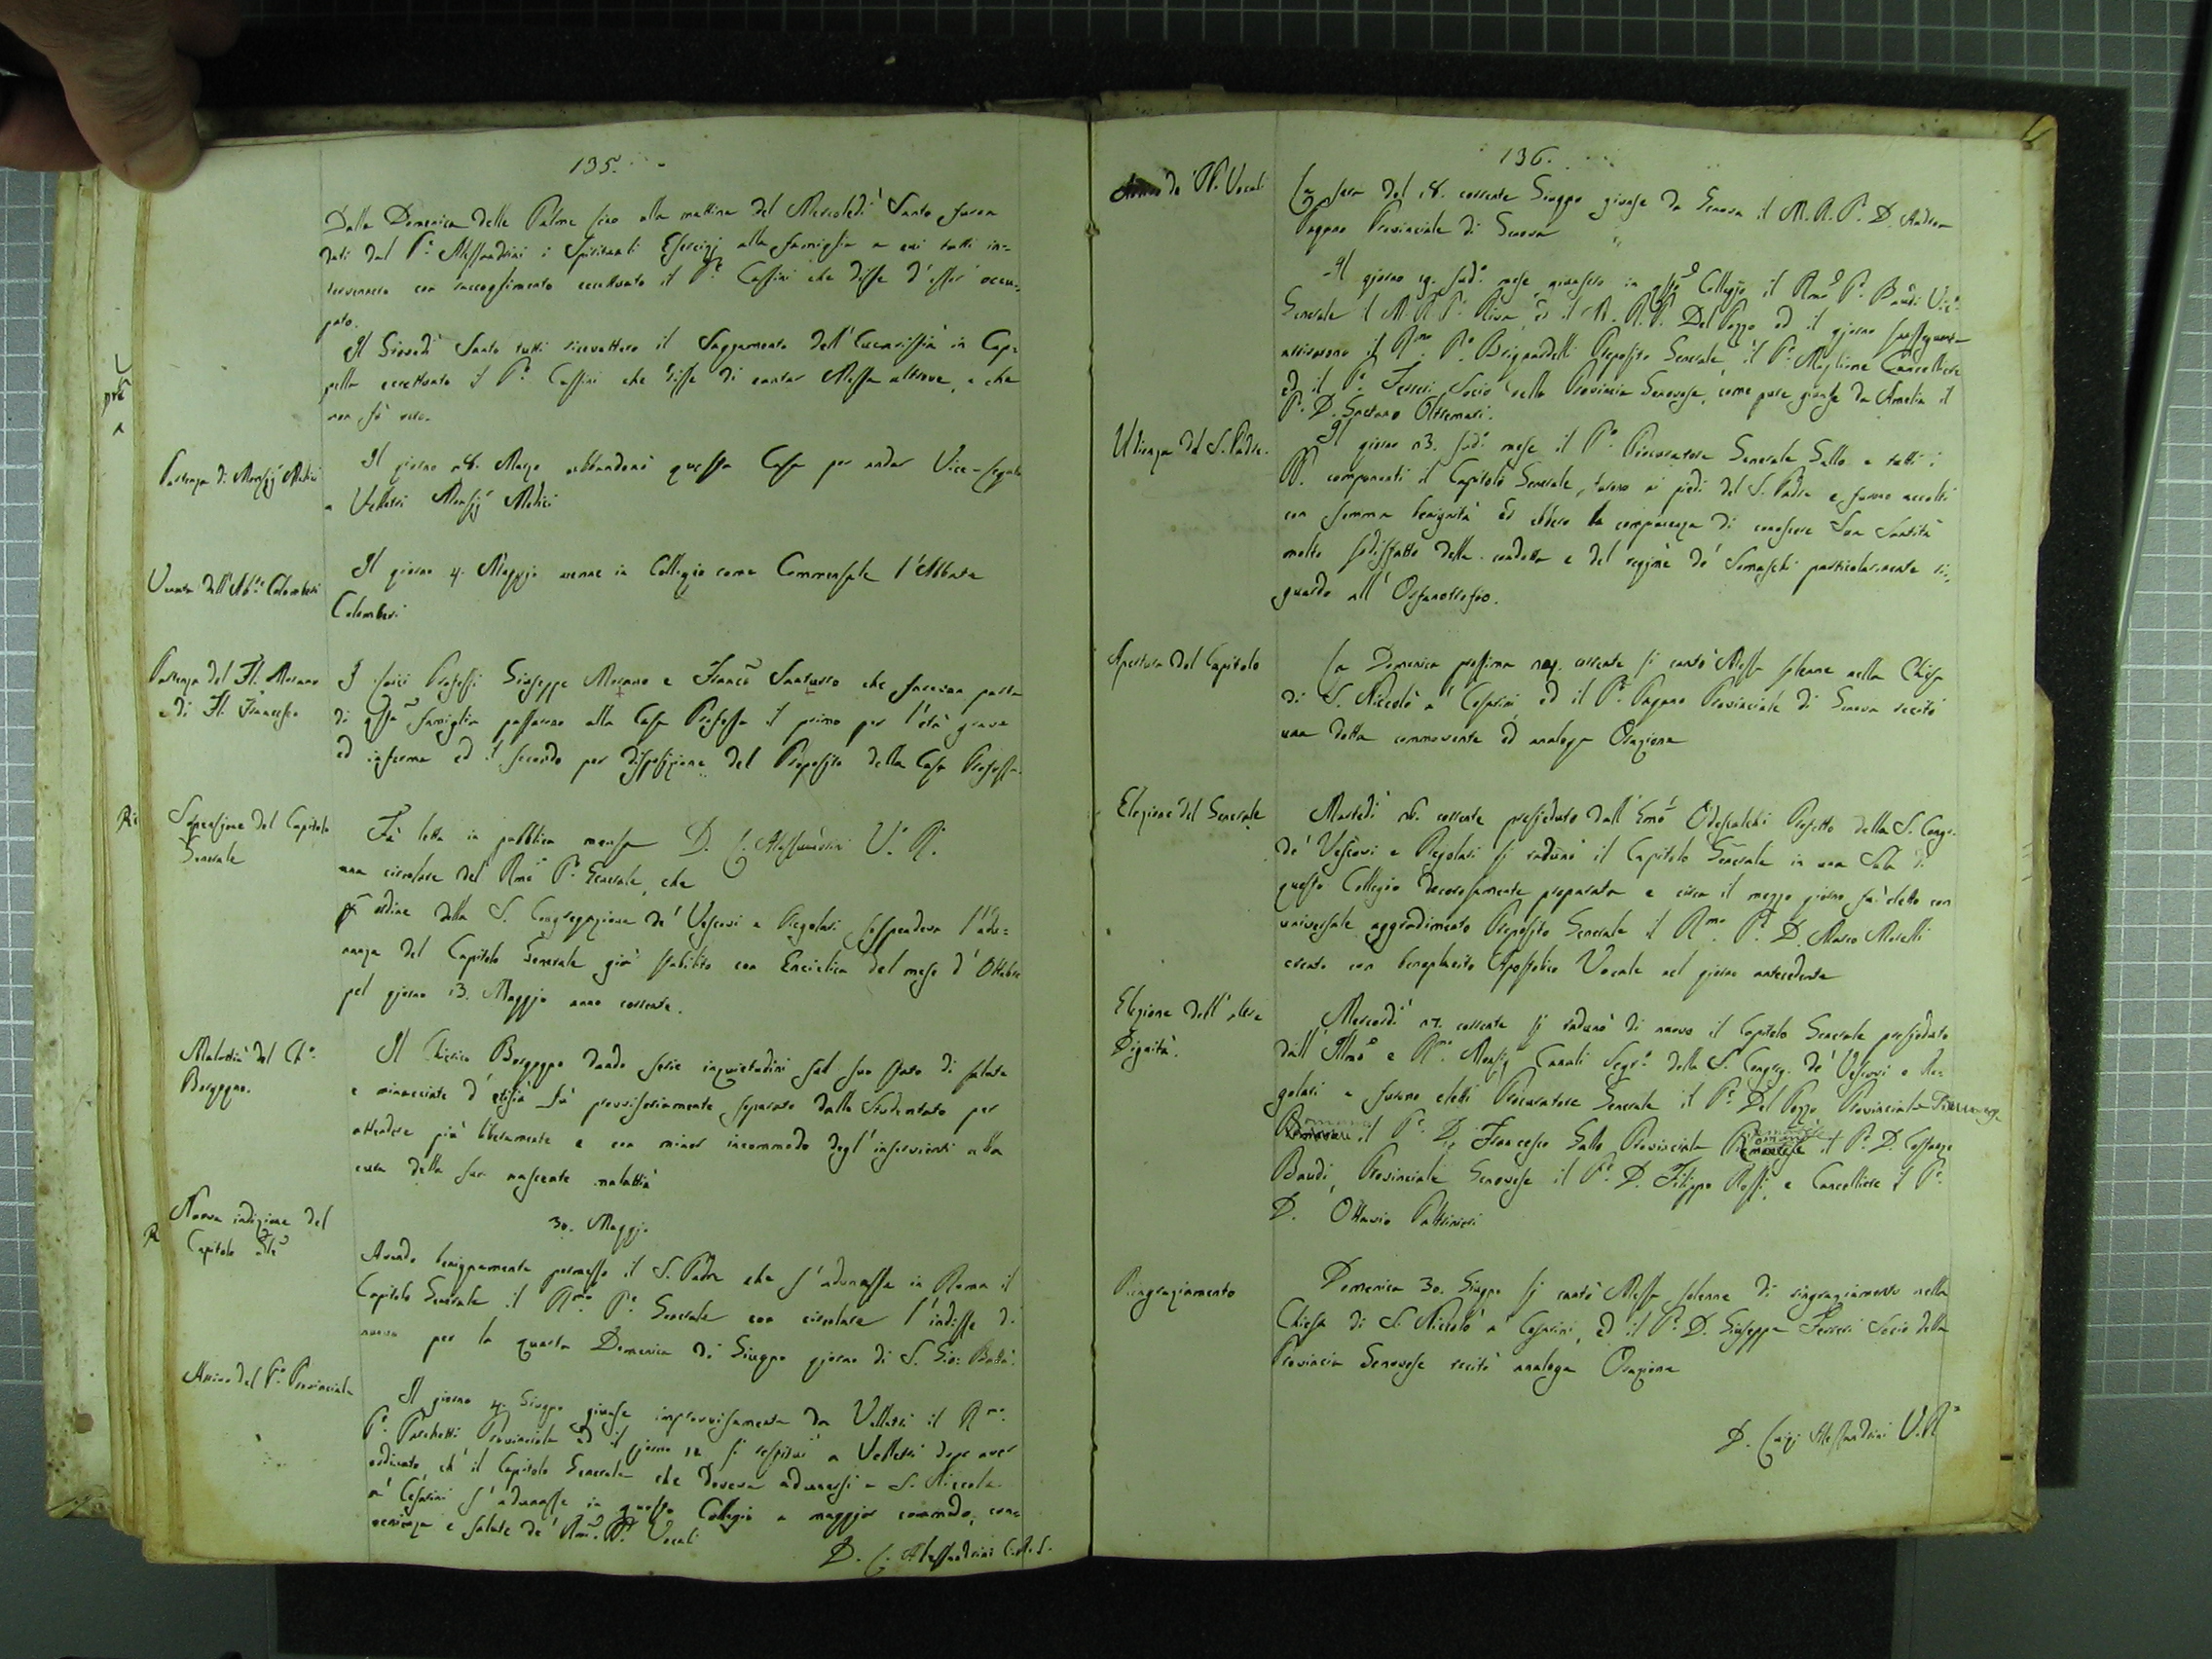 135.
Dalla Domenica delle Palme sino alla mattina del Mercoledì Santo furon
dati dal P.e Alessandrini i Spirituali Esercizj alla famiglia a cui tutti in=
tervennero con raccoglimento eccettuato il P.e Cassini che disse d'esser occu=
pato.
Il Giovedì Santo tutti ricevettero il Sagramento dell'Eucaristia in Cap=
pella eccettuato il P.e Cassini che disse di cantar Messa altrove, e che
non fù vero.
Partenza di Monsig.r Medici
Il giorno 28. Marzo abbandonò questa Casa per andar Vice-legato
a Velletri Monsig.r Medici
Venuta dell'Ab.e Colombori
Il giorno 4. Maggio venne in Collegio come Commensale l'Abbate
Colombori
Partenza del Fl. Morano
e di Fl. Francesco
I laici Professi Giuseppe Morano e Franco Santurro che facevan parte
di qsta famiglia passarono alla Casa Professa il primo per l'età grave
ed inferma ed il secondo per disposizione del Preposito della Casa Professa
Sospensione del Capitolo
Generale
Fù letta in pubblica mensa D. L. Alessandrini V. R.
una circolare del Rmo P.e Generale, che
p ordine della S. Congregazione de' Vescovi e Regolari sospendeva l'adu=
nanza del Capitolo Generale già stabilito con Enciclica del mese d'Ottobre
pel giorno 13. Maggio anno corrente.
Malattia del Ch.o
Borgogno.
Il Chierico Borgogno dando serie inquietudini sul suo stato di salute
e minacciato d'etisia fù provvisoriamente separato dallo Studentato per
attendere più liberamente e con minor incommodo degl'inservienti alla
cura della sua nascente malattia
Nuova indizione del
Capitolo Gle
30. Maggio
Avendo benignamente permesso il S. Padre che s'adunasse in Roma il
Capitolo Generale il Rmo P.e Generale con circolare l'indisse di
nuovo per la quarta Domenica di Giugno giorno di S. Gio: Batta.
Arrivo del P.e Provinciale
Il giorno 4. Giugno giunse improvvisamente da Velletri il Rmo
P.e Parchetti Provinciale ed il giorno 12 si restituì a Velletri dopo aver
ordinato, ch'il Capitolo Generale che doveva adunarsi a S. Niccola
a' Cesarini s'adunasse in questo Collegio a maggior commodo, con=
venienza e salute de' Rmi PP. Vocali
D. L. Alessandrini C.R.S.
136.
de' PP. Vocali
La sera del 18. corrente Giugno giunse da Genova il M. R. P. D. Andrea
Pagano Provinciale di Genova
Il giorno 19. sud.o mese giunsero in qsto Collegio il Rmo P.e Baudi Vic.o
Generale il M. R. P. Riva, ed il M. R. P. Del Pozzo ed il giorno susseguente
arrivarono il Rmo P.e Brignardelli Preposito Generale, il P.e Maglione Cancelliere
ed il P.e Ferreri Socio della Provincia Genovese, come pure giunse da Amelia il
P. D. Gaetano Oltremari.
Udienza del S. Padre.
Il giorno 23. sud.o mese il P.e Procuratore Generale Gallo e tutti i
PP. componenti il Capitolo Generale, furono ai piedi del S. Padre e furono accolti
con somma benignità ed ebbero la compiacenza di conoscere Sua Santità
molto sodisfatto della condotta e del regime de' Somaschi particolarmente ri=
guardo all'Orfanotrofio.
Apertura del Capitolo
La Domenica prossima 24. corrente si cantò Messa solenne nella Chiesa
di S. Niccolò a' Cesarini, ed il P.e Pagano Provinciale di Genova recitò
una dotta commovente ed analoga Orazione
Elezione del Generale
Martedì 26. corrente presieduto dall'Emo Odescalchi Prefetto della S. Cong.
de' Vescovi e Regolari si radunò il Capitolo Generale in una Sala di
questo Collegio decorosamente preparata e circa il mezzo giorno fù eletto con
universale aggradimento Preposito Generale il Rmo P.e D. Marco Morelli
creato con beneplacito Apostolico Vocale nel giorno antecedente
Elezione dell'altre
Dignità.
Mercordì 27. corrente si radunò di nuovo il Capitolo Generale presieduto
dall'Illmo e Rmo Monsig.r Canali Segr.o della S. Congreg. de' Vescovi e Re=
golari e furono eletti Procuratore Generale il P.e Del Pozzo Provinciale
Romano il P.e D. Francesco Gallo Provinciale Piemontese il P.e D. Costanzo
Baudi, Provinciale Genovese il P.e D. Filippo Rossi, e Cancelliere il P.e
D. Ottavio Paltrinieri
Ringraziamento
Domenica 30. Giugno si cantò Messa solenne di ringraziamento nella
Chiesa di S. Niccolò a' Cesarini, ed il P.e D. Giuseppe Ferreri Socio della
Provincia Genovese recitò analoga Orazione
D. Luigi Alessandrini V. R.